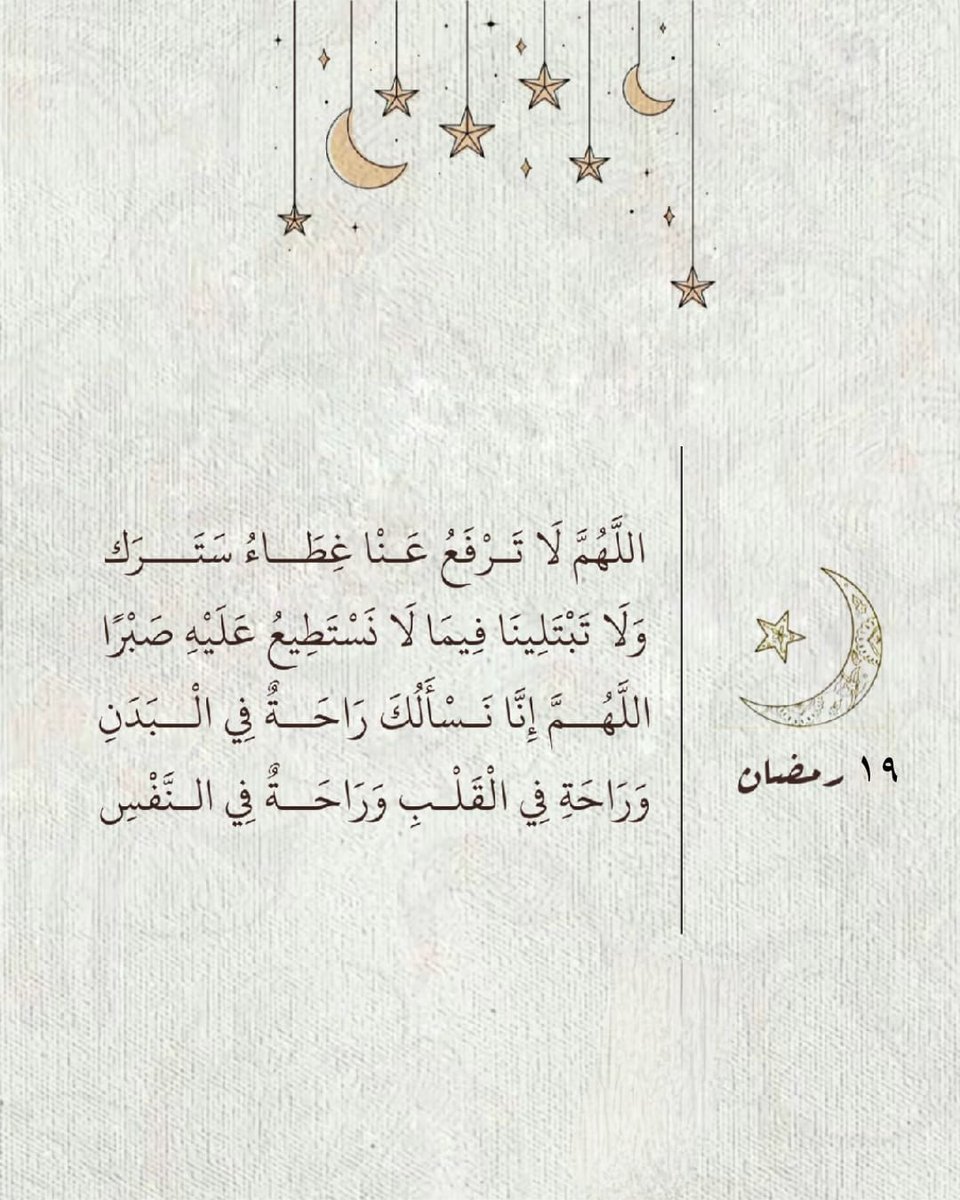 اللَّهُمَّ لَا تَـرْفَعُ عَـنْا غِطَـــاءُ سَتَـــــرَك
وَلَا تَبْتَلِينَا فِيمَا لَا نَسْتَطِيعُ عَلَيْهِ صَبْرًا
اللَّهُـــمَّ إِنَّا نَـسْأَلُكَ رَاحَـــةٌ فِي الْـــبَدَنِ
وَرَاحَةِ فِي الْقَلْــبِ وَرَاحَـــةٌ فِي الـنَّفْسِ
١٩ رمضان